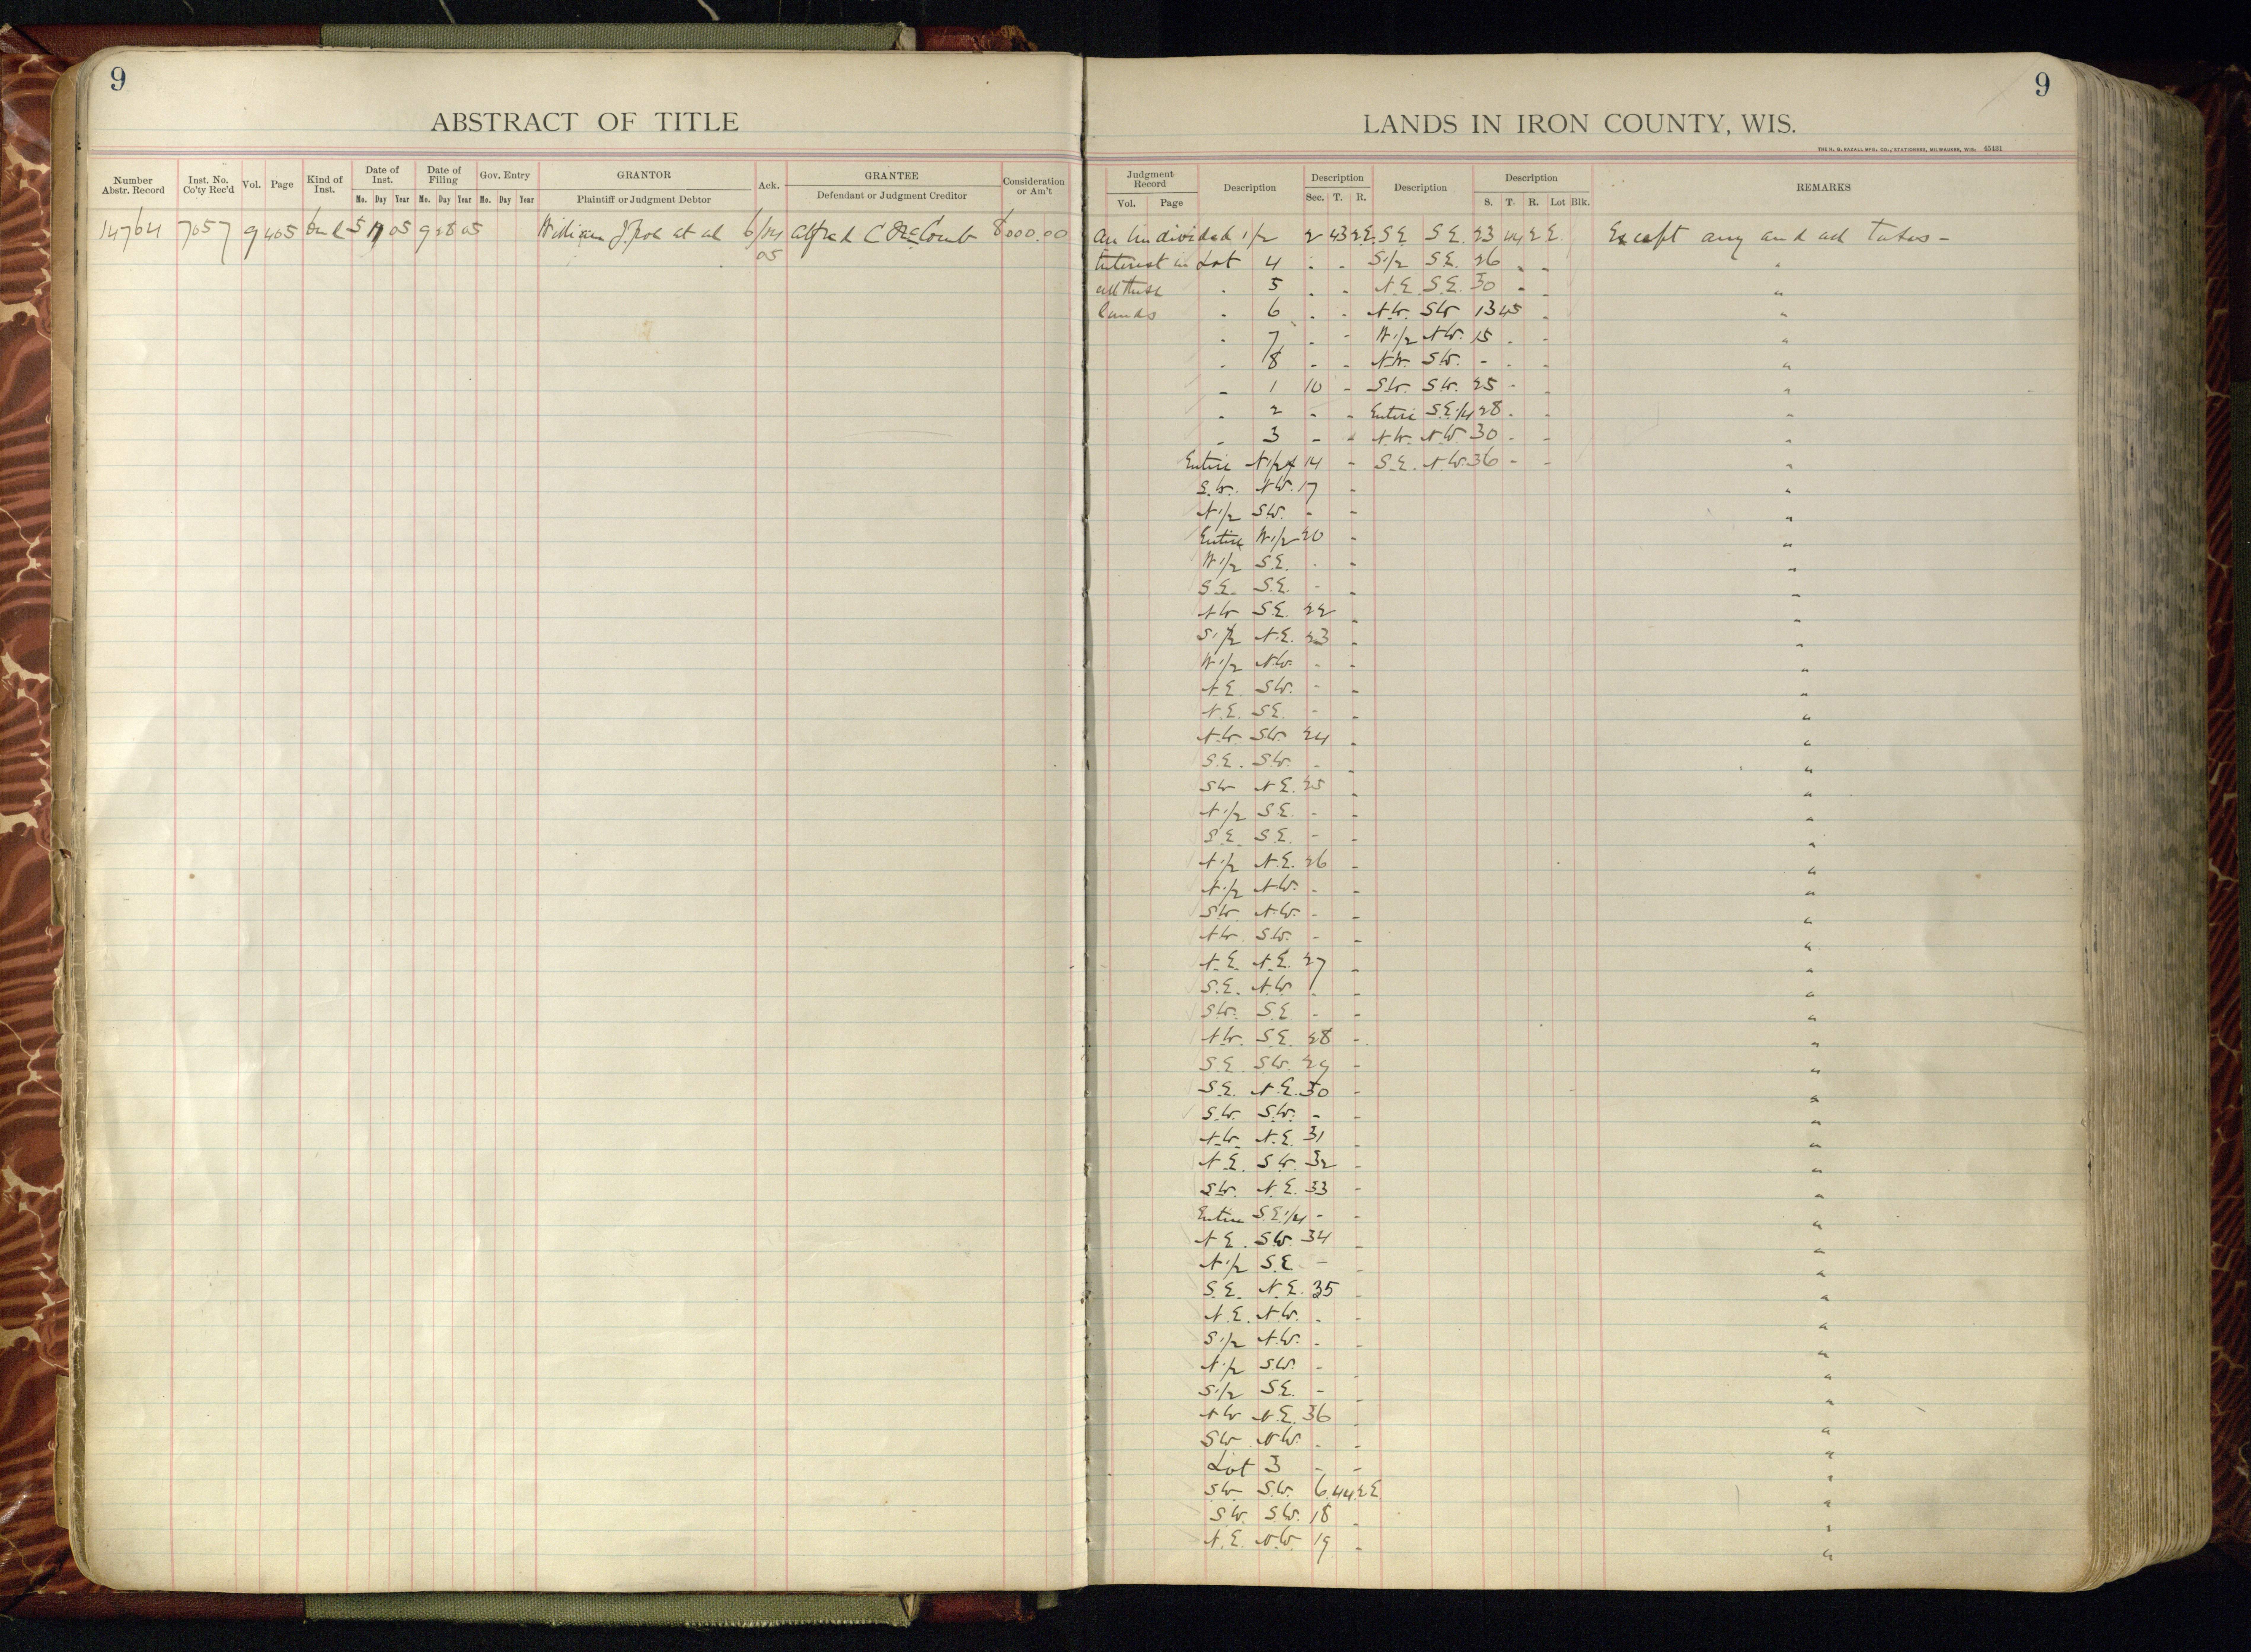 9
ABSTRACT OF TITLE
Number Abstr. Record Inst. No. Co'ty Rec'd Vol. Page Kind of Inst. Date of Inst. Mo. Day Year Date of Filing Mo. Day Year Gov. Entry Mo. Day Year GRANTOR Plaintiff or Judgment Debtor Ack. GRANTEE Defendant or Judgment Creditor Consideration or Am't
14764 7057 9 405 5 05 9 28 05 William J. et al 6/14 Alfred C McComb 8000.00
05
9
LANDS IN IRON COUNTY, WIS.
THE H. G. RAZALL MFG. CO., STATIONERS, MILWAUKEE, WIS. 45431
Judgment Record Vol. Page Description Description Sec. T. R. Description Description S. T. R. Lot Blk. REMARKS
An Undivided 1/2 2 43 2E SE S.E. 23 44 2 E. Except any and all taxes -
Interest in Lot 4 . - S1/2 S.E. 26 - - "
all these . 5 . - N.E. S.E. 30 - - "
lands . 6 . - N.W. SW 13 45 - "
. 7 . - W1/2 N.W. 15 . - "
. 8 - - N.W. S.W. - . - "
- 1 10 - S.W. S.W. 25 - - "
. 2 - - Entire S.E.1/4 28 . - "
- 3 - " N.W. N.W. 30 - - "
Entire N1/2 14 - S.E. N.W. 36 - - "
S.W. N.W. 17 - "
N1/2 S.W. - - "
Entire W1/2 20 - "
W1/2 S.E. . - "
S.E. S.E. - -
N.W S.E. 22 - "
S1/2 N.E. 23 - "
W1/2 N.W. - - "
N.E. S.W. - - "
N.E. S.E. - - "
N.W. S.W. 24 - "
S.E. S.W. - - "
S.W N.E. 25 - "
N1/2 S.E. - - "
S.E. S.E. - - "
N1/2 N.E. 26 - "
N1/2 N.W. - - "
S.W. N.W. - - "
N.W. S.W. - - "
N.E. N.E. 27 - "
S.E. N.W. . - "
S.W. S.E. - - "
N.W. S.E. 28 - "
S.E. S.W. 29 - "
S.E. N.E. 30 - "
S.W. S.W. - - "
N.W. N.E. 31 - "
N.E. S.W. 32 - "
S.W. N.E. 33 - "
Entire S.E.1/4 - - "
N.E. S.W. 34 - "
N1/2 S.E. - - "
S.E. N.E. 35 - "
N.E. N.W. . - "
S1/2 N.W. . - "
N1/2 S.W. - - "
S1/2 S.E. - - "
N.W N.E. 36 - "
S.W N.W. . - "
Lot 3 - - "
S.W S.W. 6 44 2E "
S.W. S.W. 18 - "
N.E. N.W. 19 - "